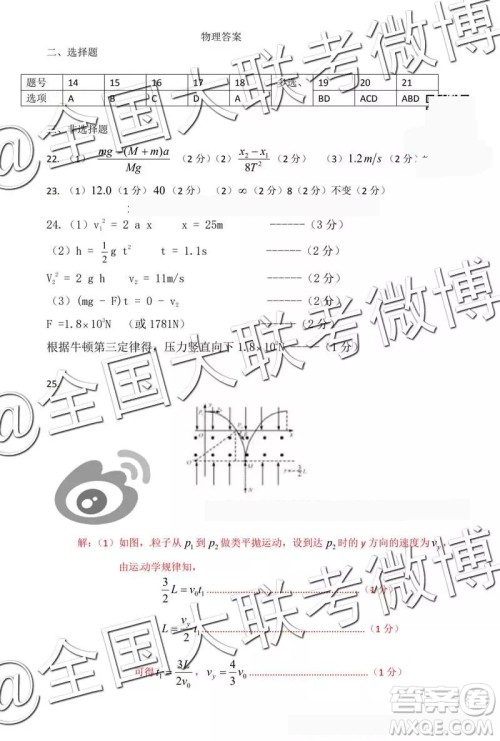 物理答案
二、选择题
题号 14 15 16 17 18 19 20 21
选项 A B C D A BD ACD ABD
三、非选择题
22. (1) mg-(M+m)a / Mg (2分) (2) x₂-x₁ / 8T² (2分) (3) 1.2m/s (2分)
23. (1) 12.0 (1分) 40 (2分) (2) ∞ (2分) 8 (2分) 不变 (2分)
24. (1) v₁² = 2 a x x = 25m ------(3分)
(2) h = 1/2 g t² t = 1.1s ------(2分)
V₂² = 2 g h v₂ = 11m/s ------(2分)
(3) (mg - F)t = 0 - v₂
F =1.8×10³N (或 1781N) ------(2分)
根据牛顿第三定律得,压力竖直向下 1.8×10³N (1分)
25.
解: (1) 如图, 粒子从 p₁ 到 p₂ 做类平抛运动, 设到达 p₂ 时的 y 方向的速度为 vy,
由运动学规律知,
3/2 L = v₀t₁ (1分)
L = vy/2 t₁ (1分)
可得 t₁ = 3L/2v₀ , vy = 4/3 v₀ (1分)
@全国大联考微博
@全国大联考微博
@全国大联考微博
答案圈
MXQE.COM